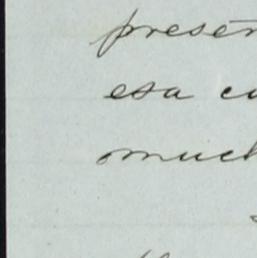 presen
esa co
much